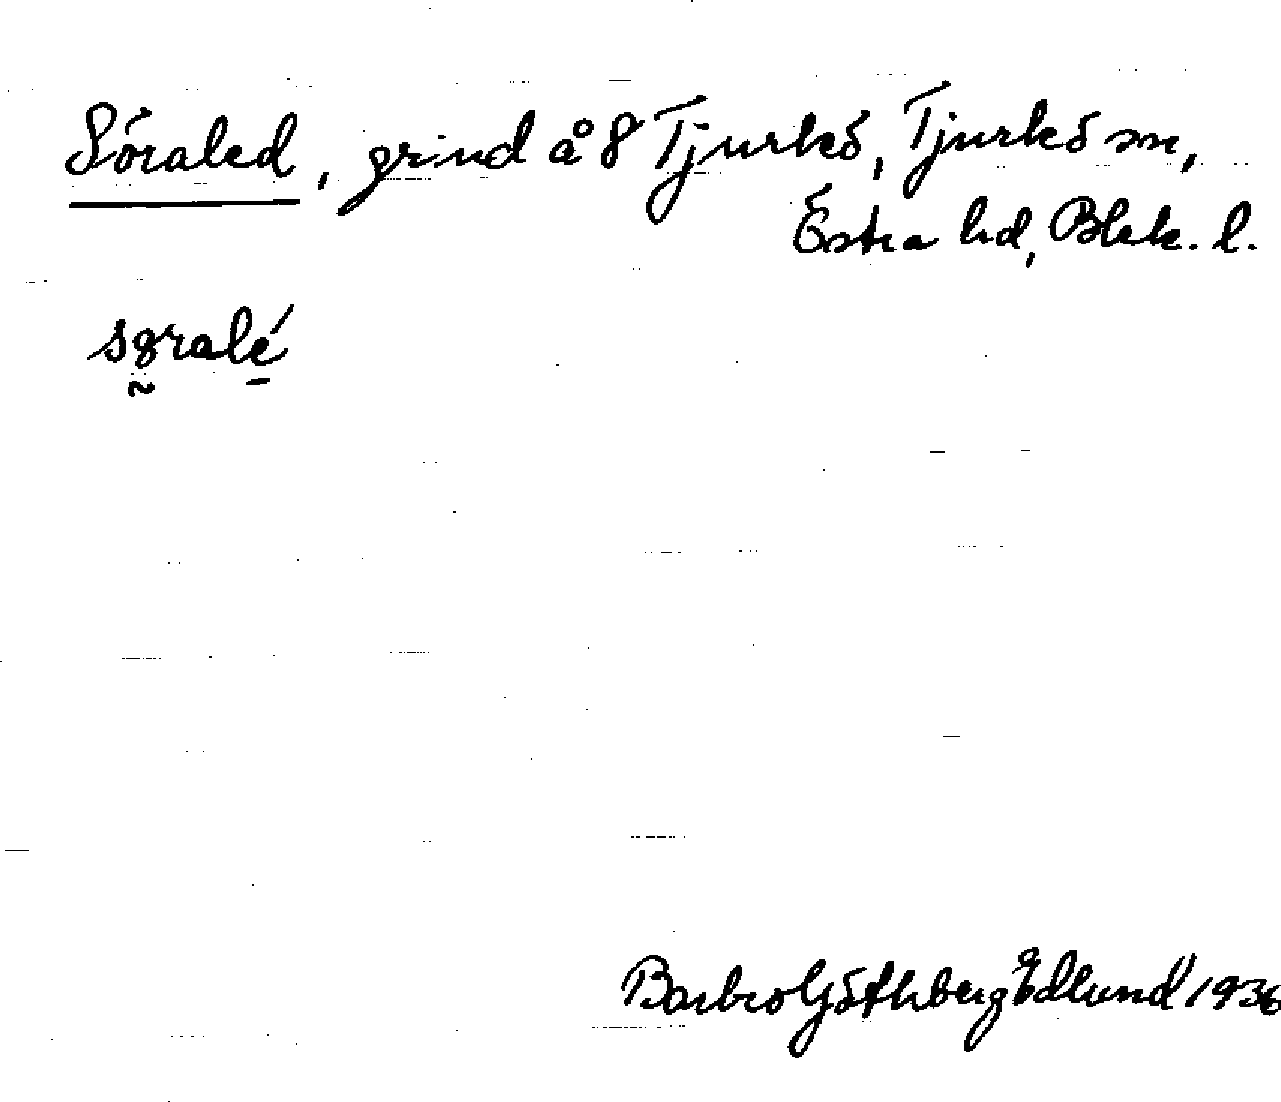 Söraled, grind å 8 Tjurkö, Tjurkö sn,
Östra hd, Blek. l.
søralé
Barbro Göthberg Edlund 1936